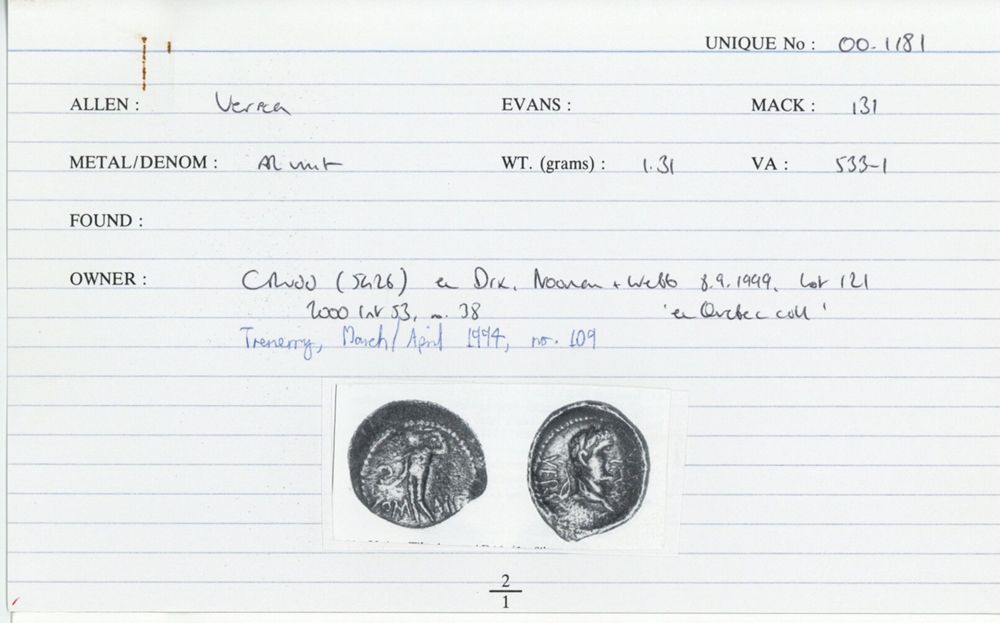 UNIQUE No : 00-1181
ALLEN : Verica EVANS : MACK : 131
METAL/DENOM : AR unit WT. (grams) : 1.31 VA : 533-1
FOUND :
OWNER : (5426) ex Dix, Noonan + Webb 8.9.1999, Lot 121
2000 List 53, no. 38 'ex Quebec coll'
Trenerry, March/April 1994, no. 109
2
1